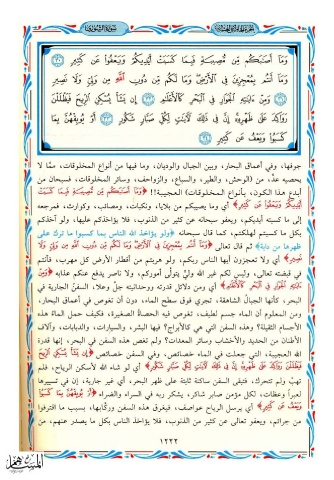 سورة الشورى
وَمَا أَصَابَكُم مِّن مُّصِيبَةٍ فَبِمَا كَسَبَتْ أَيْدِيكُمْ وَيَعْفُوا عَن كَثِيرٍ
وَمَا أَنتُم بِمُعْجِزِينَ فِي الْأَرْضِ وَمَا لَكُم مِّن دُونِ اللَّهِ مِن وَلِيٍّ وَلَا نَصِيرٍ
وَمِنْ آيَاتِهِ الْجَوَارِ فِي الْبَحْرِ كَالْأَعْلَامِ إِن يَشَأْ يُسْكِنِ الرِّيحَ فَيَظْلَلْنَ
رَوَاكِدَ عَلَى ظَهْرِهِ إِنَّ فِي ذَلِكَ لَآيَاتٍ لِّكُلِّ صَبَّارٍ شَكُورٍ أَوْ يُوبِقْهُنَّ بِمَا
كَسَبُوا وَيَعْفُ عَن كَثِيرٍ
جوفها، وفي أعماق البحار، وبين الجبال والوديان، وما فيها من أنواع المخلوقات، ممّا لا
يحصيه عدّ، من (الوحش، والطير، والسباع، والزواحف، وسائر المخلوقات) فسبحان من
أبدع هذا الكون، بأنواع المخلوقات العجيبة!! ﴿وَمَا أَصَابَكُم مِّن مُّصِيبَةٍ فَبِمَا كَسَبَتْ
أَيْدِيكُمْ وَيَعْفُوا عَن كَثِيرٍ﴾ أي وما يصيبكم من بلايا، ونكبات، ومصائب، وكوارث، فمرجعه
إلى ما كسبته أيديكم، ويعفو سبحانه عن كثير من الذنوب، فلا يؤاخذكم عليها، ولو آخذكم
بكل ما كسبتم لهلكتم، كما قال سبحانه ﴿ولو يؤاخذ الله الناس بما كسبوا ما ترك على
ظهرها من دابة﴾ ثم قال تعالى ﴿وَمَا أَنتُم بِمُعْجِزِينَ فِي الْأَرْضِ وَمَا لَكُم مِّن دُونِ اللَّهِ مِن وَلِيٍّ وَلَا
نَصِيرٍ﴾ أي ولا تعجزون أيها الناس ربكم، ولو هربتم من أقطار الأرض كل مهرب، فأنتم
في قبضته تعالى، وليس لكم غير الله وليٌّ يتولّى أموركم، ولا ناصر يدفع عنكم عذابه ﴿وَمِنْ
آيَاتِهِ الْجَوَارِ فِي الْبَحْرِ كَالْأَعْلَامِ﴾ أي ومن دلائل قدرته ووحدانيته جلّ وعلا، السفنُ الجارية في
البحر، كأنها الجبالُ الشاهقة، تجري فوق سطح الماء، دون أن تغوص في أعماق البحار،
ومن المعلوم أن الماء جسم لطيف، تغوص فيه الحصاةُ الصغيرة، فكيف حمل الماءُ هذه
الأجسام الثقيلة؟ وهذه السفن التي هي كالأبراج؟ فيها البشر، والسيارات، والدبابات، وآلاف
الأطنان من الحديد والأخشاب وسائر المعدات؟ ولم تغص هذه السفن في البحر، إنها قدرة
الله العجيبة، التي جعلت في الماء خصائص، وفي السفن خصائص ﴿إِن يَشَأْ يُسْكِنِ الرِّيحَ
فَيَظْلَلْنَ رَوَاكِدَ عَلَى ظَهْرِهِ إِنَّ فِي ذَلِكَ لَآيَاتٍ لِّكُلِّ صَبَّارٍ شَكُورٍ﴾ أي لو شاء الله لأسكن الرياح، فلم
تهبّ ولم تتحرك، فتبقى السفن ساكنة ثابتة على ظهر البحر، أي غير جارية، إن في تسييرها
لعبراً وعظات، لكل مؤمن صابر شاكر، يشكر ربه في السراء والضراء ﴿أَوْ يُوبِقْهُنَّ بِمَا كَسَبُوا
وَيَعْفُ عَن كَثِيرٍ﴾ أي يرسل الرياح عواصف، فيغرق هذه السفن وركّابها، بسبب ما اقترفوا
من جرائم، ويعفو تعالى عن كثير من الذنوب، فلا يؤاخذ الناس بكل ما يصدر عنهم، من
١٢٢٢